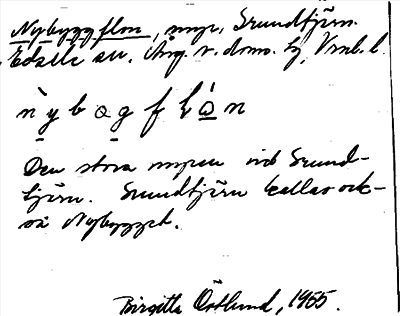 Nybyggflon, myr, Grundtjärn
Edsele sn. Ång. v. doms. hg, Vnrl. l.
ǹ y b ɷ g f ł ώ n
Den stora myren vid Grund-
tjärn. Grundtjärn kallas ock-
så Nybygget.
Birgitta Östlund, 1965.